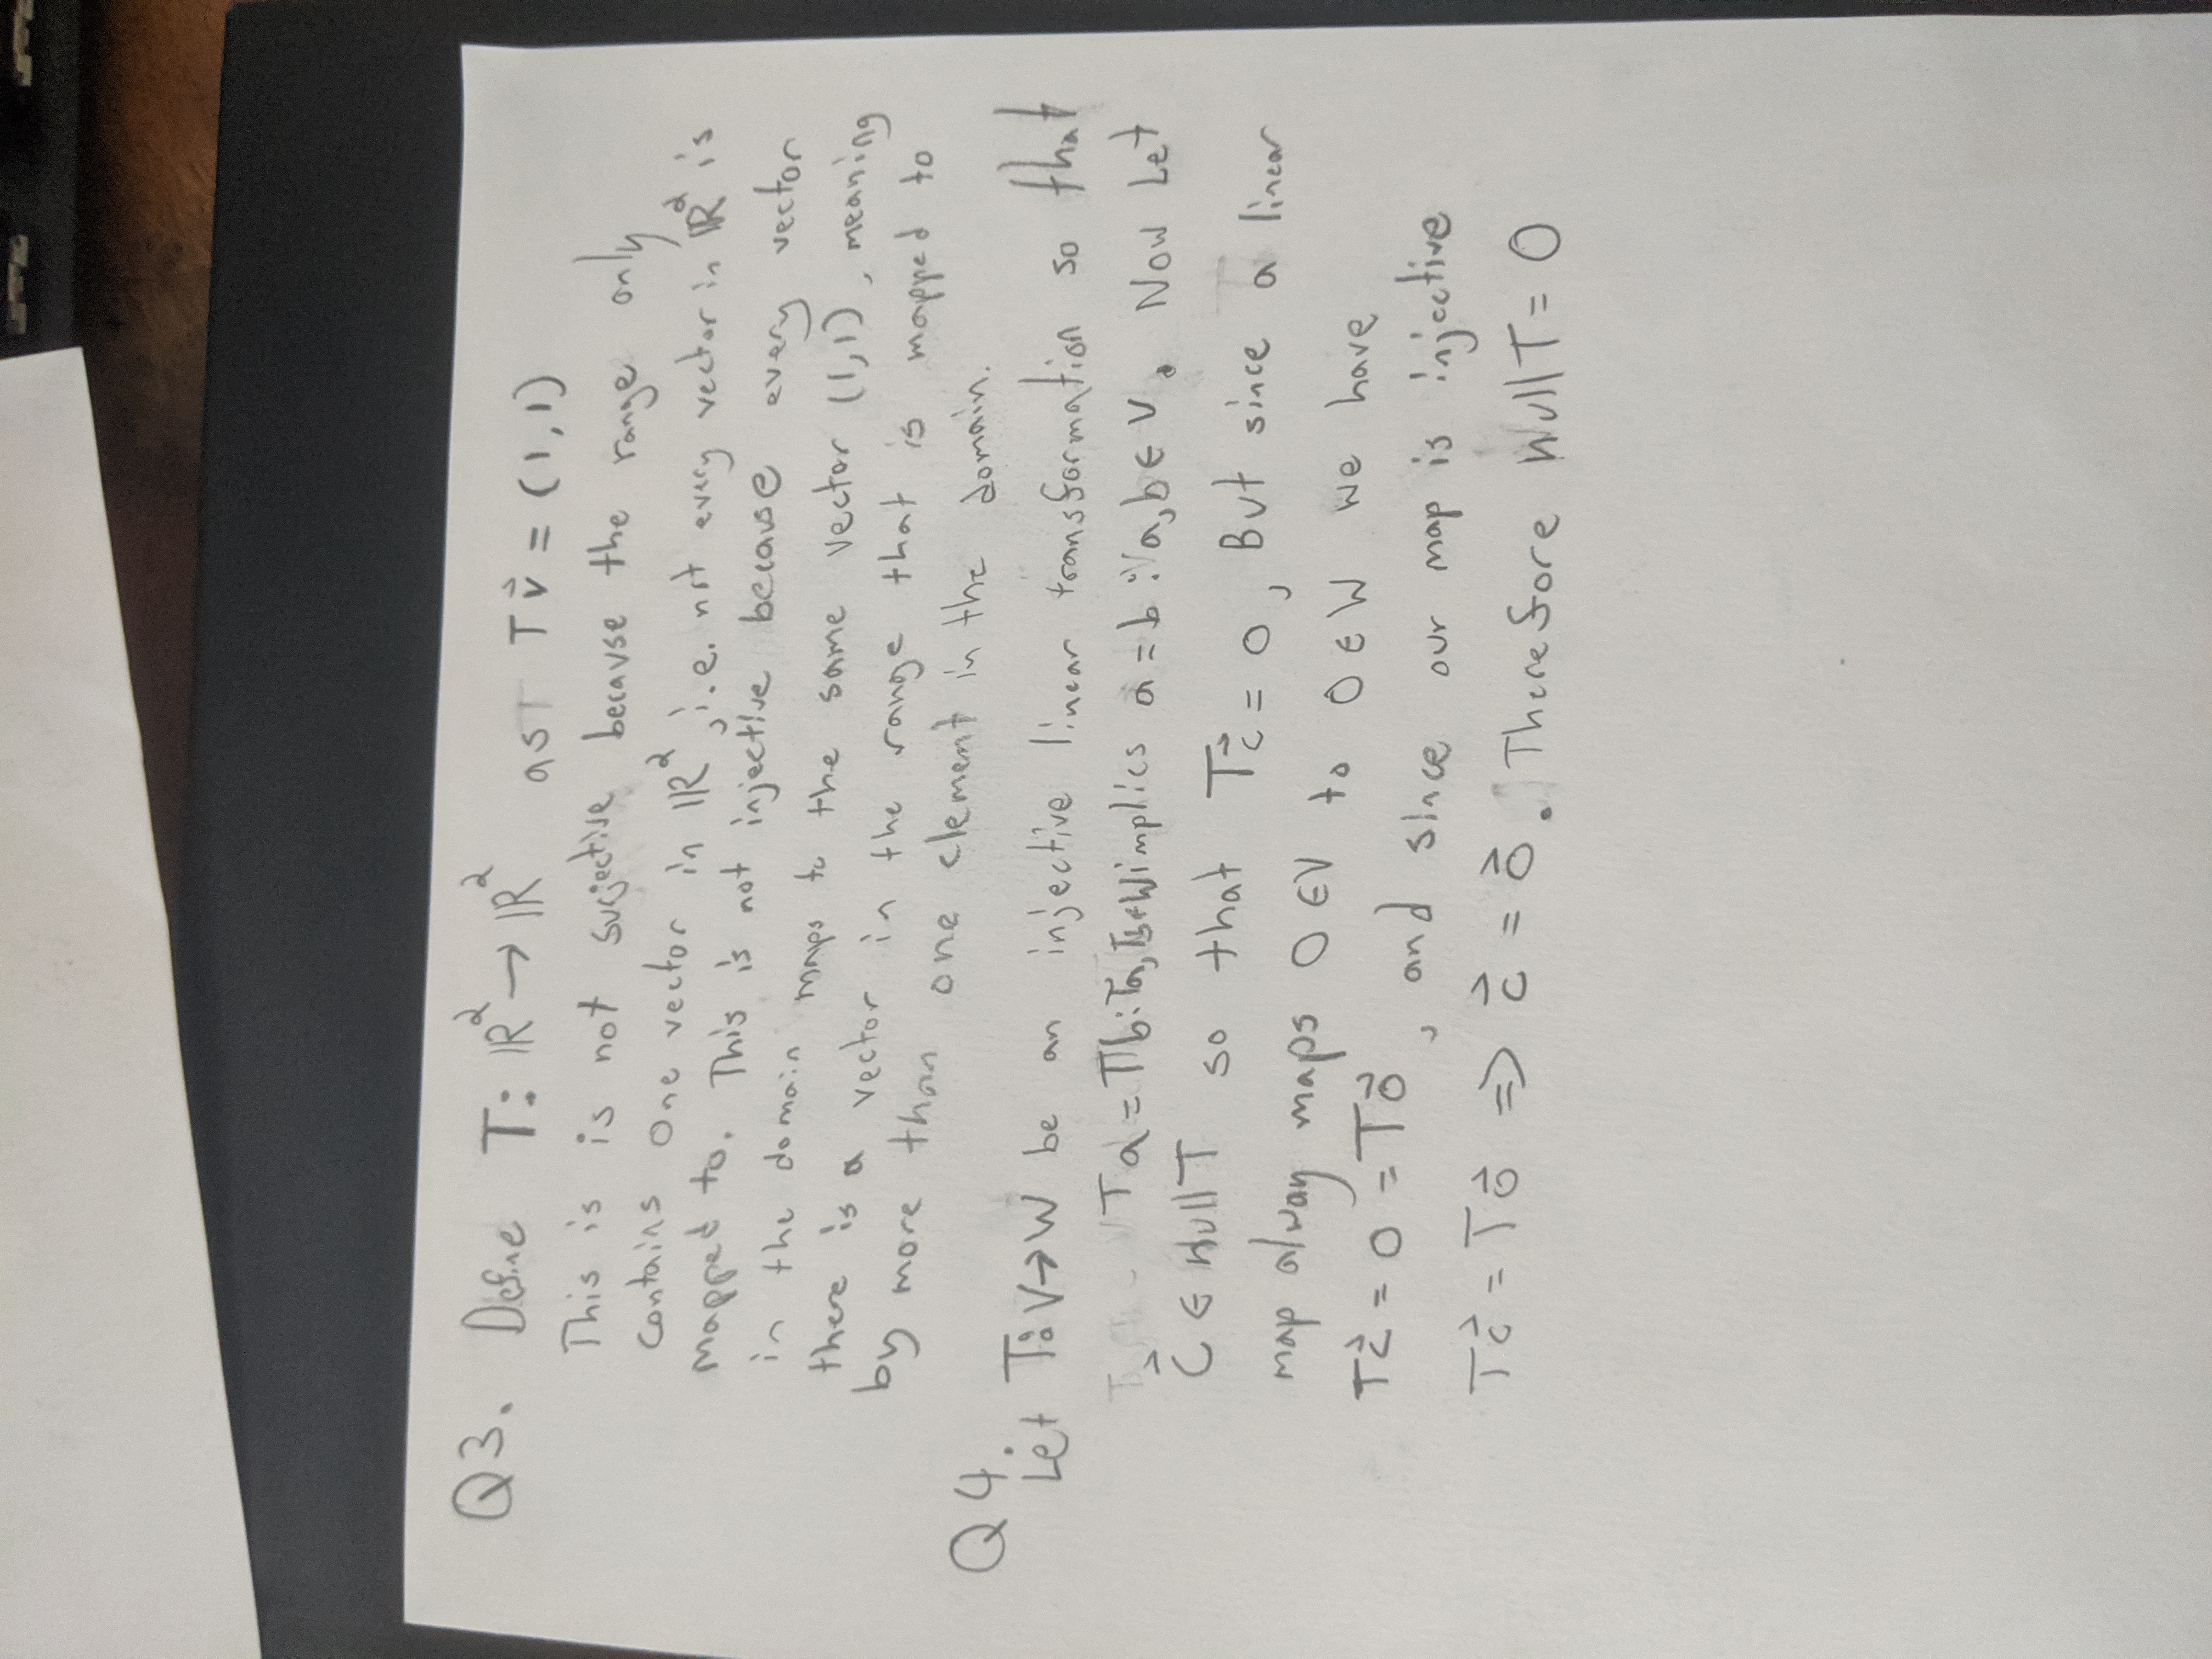 Q3. Define T: ℝ² → ℝ² as T v⃗ = (1,1)
This is not surjective because the range only
contains one vector in ℝ², i.e. not every vector in ℝ² is
mapped to. This is not injective because every vector
in the domain maps to the same vector (1,1), meaning
there is a vector in the range that is mapped to
by more than one element in the domain.
Q4.
Let T: V→W be an injective linear transformation so that
Ta = Tb : Ta, Tb ∈ W implies a = b : a,b ∈ V. Now Let
c⃗ ∈ Null T so that Tc⃗ = 0, But since a linear
map alway maps 0 ∈ V to 0 ∈ W we have
Tc⃗ = 0 = T0⃗, and since our map is injective
Tc⃗ = T0⃗ ⇒ c⃗ = 0⃗. Therefore Null T = 0